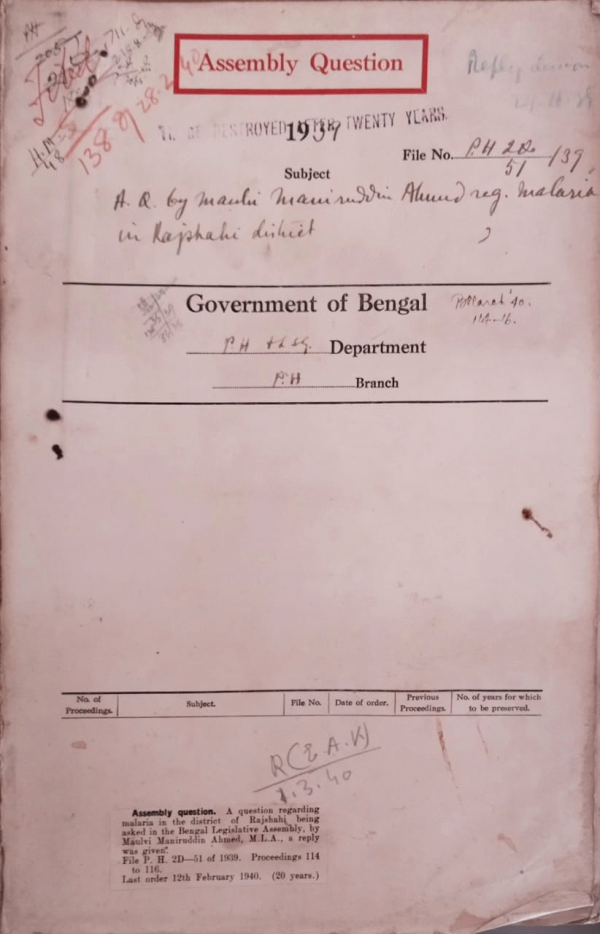 Assembly Question
TO BE DESTROYED AFTER TWENTY YEARS.
1939
File No. P.H 2D/51 /39
Subject
A. Q. by Maulvi Maniruddin Ahmed reg. Malaria
in Rajshahi district
Government of Bengal
P.H & LSG. Department
P.H Branch
P.H March '40.
114-16.
No. of Proceedings. Subject. File No. Date of order. Previous Proceedings. No. of years for which to be preserved.
R(E A.K)
1.3.40
Assembly question. A question regarding
malaria in the district of Rajshahi being
asked in the Bengal Legislative Assembly, by
Maulvi Maniruddin Ahmed, M.L.A., a reply
was given.
File P. H. 2D—51 of 1939. Proceedings 114
to 116.
Last order 12th February 1940. (20 years.)